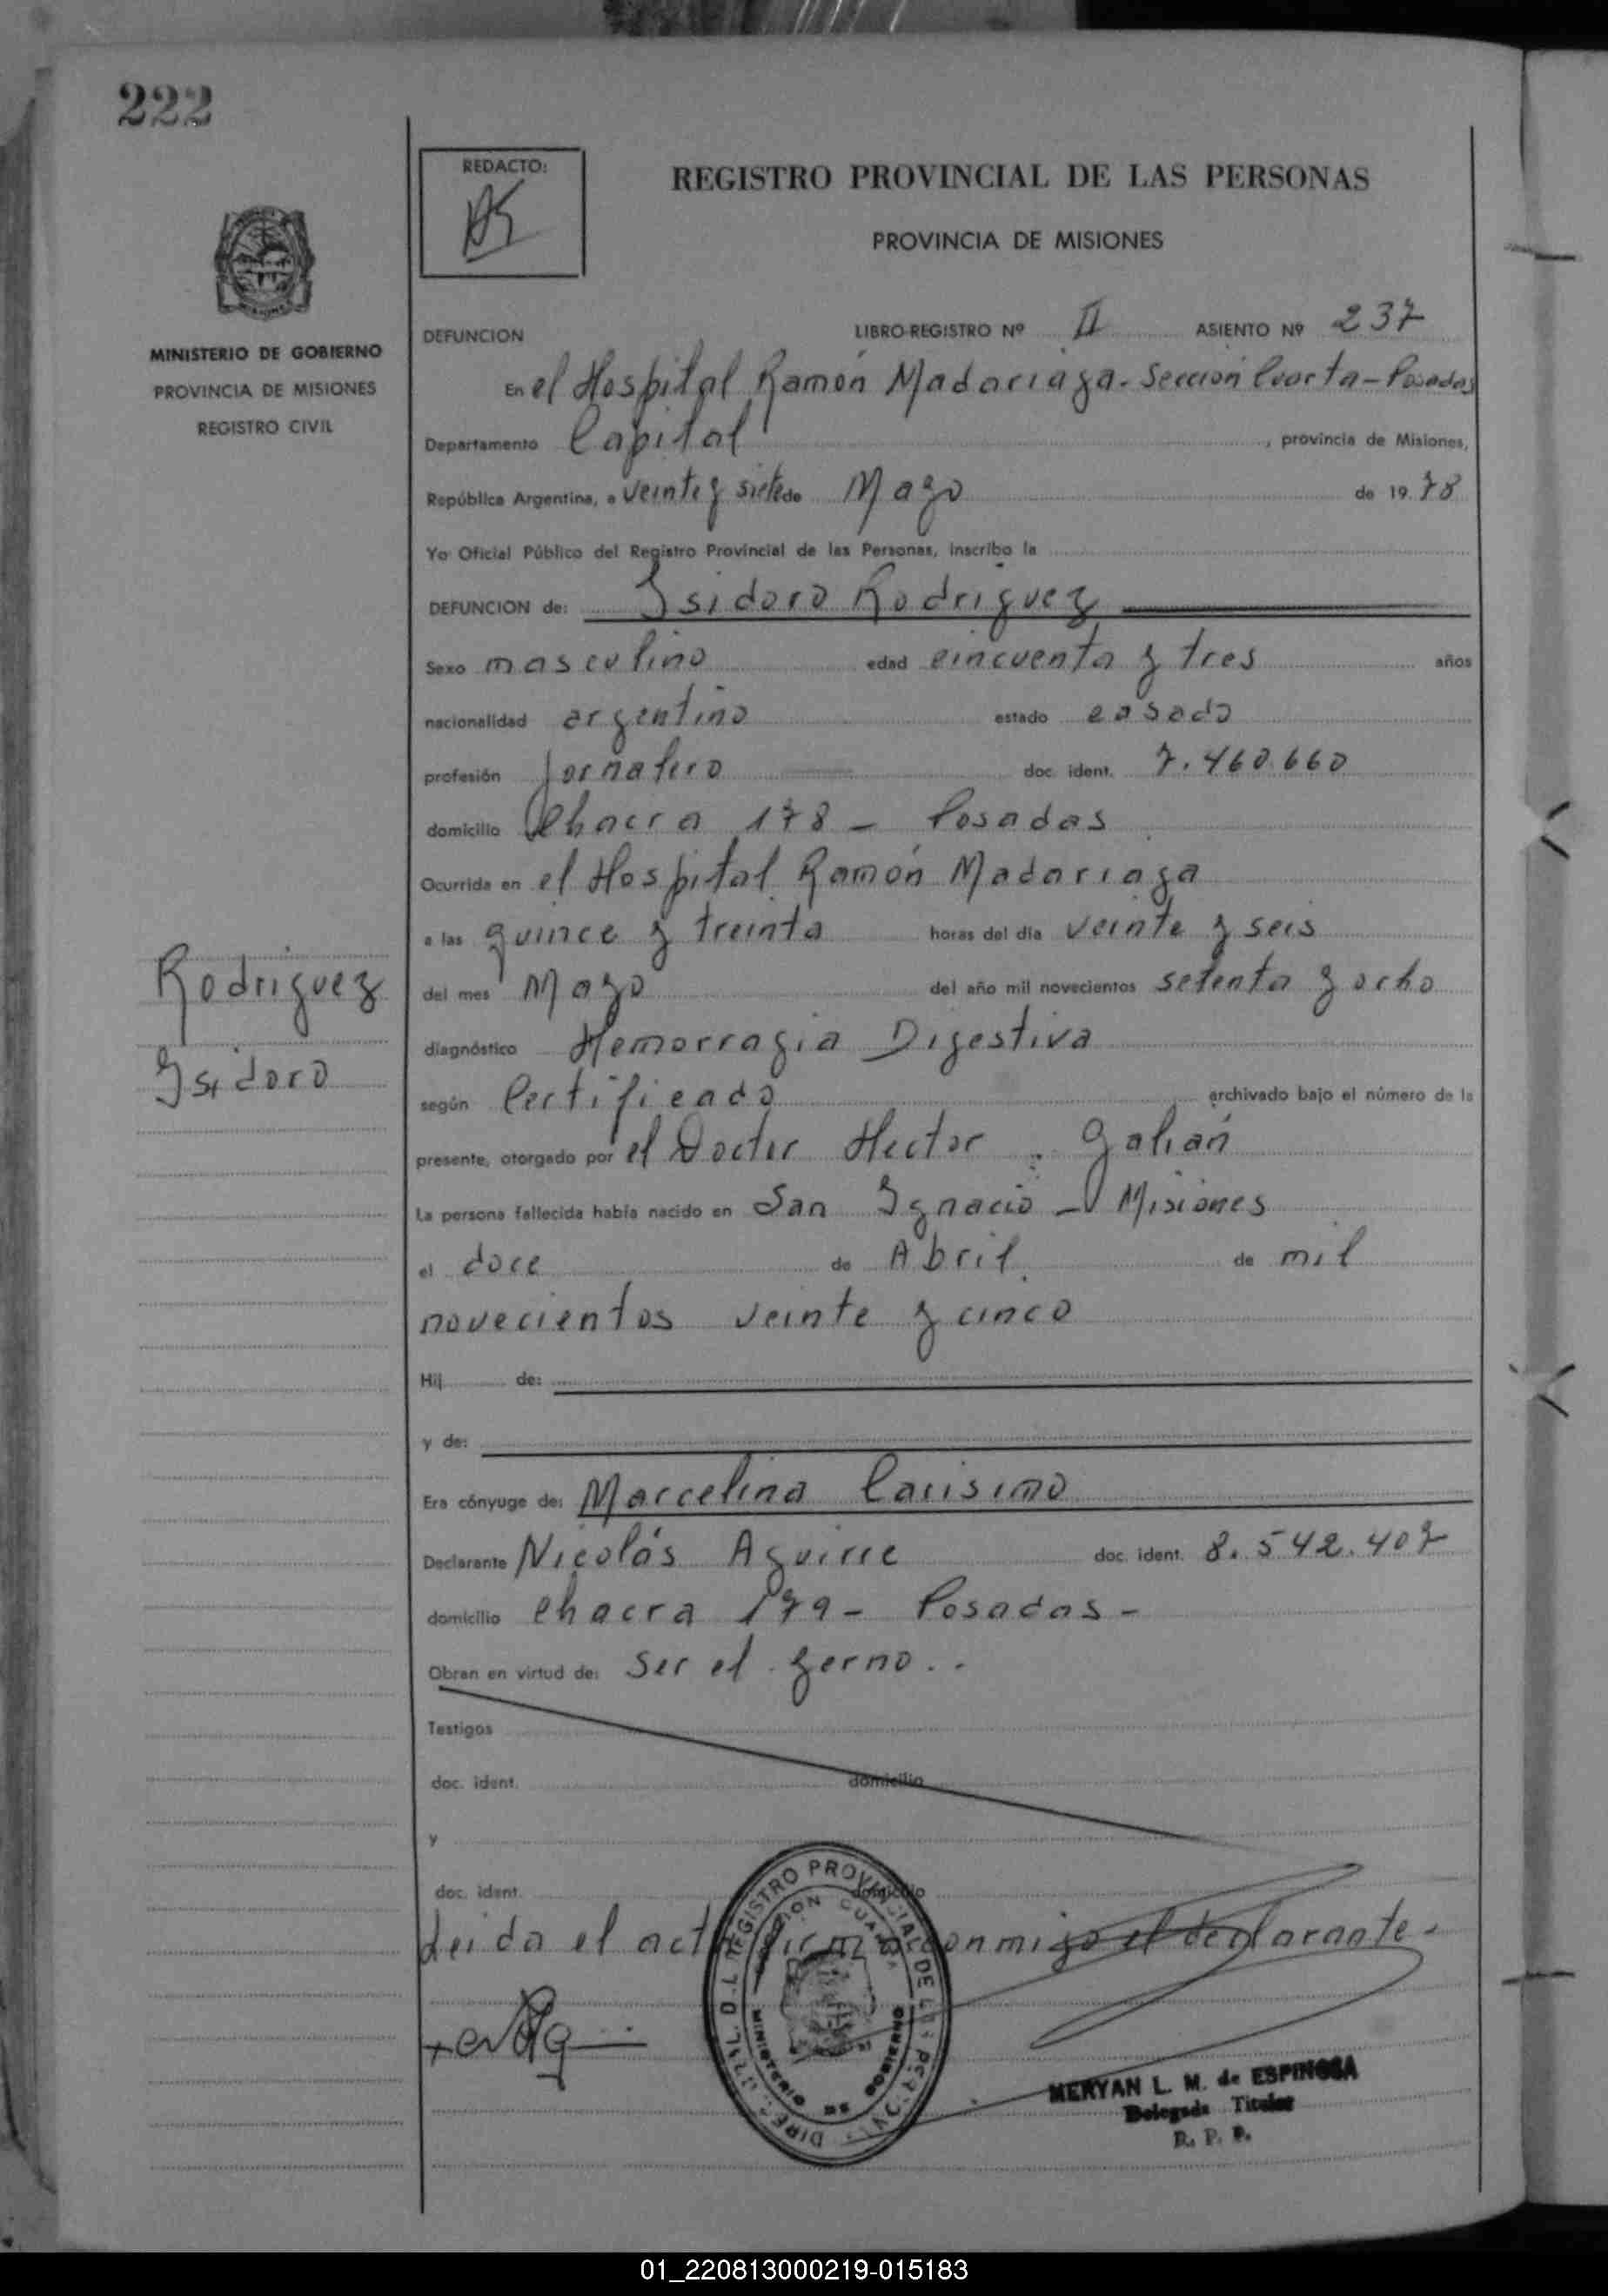 222
REDACTO:
REGISTRO PROVINCIAL DE LAS PERSONAS
PROVINCIA DE MISIONES
MINISTERIO DE GOBIERNO
PROVINCIA DE MISIONES
REGISTRO CIVIL
DEFUNCION LIBRO-REGISTRO Nº II ASIENTO Nº 237
En el Hospital Ramón Madariaga - Sección Cuarta - Posadas
Departamento Capital, provincia de Misiones,
República Argentina, a veinte y siete de Mayo de 1978
Yo Oficial Público del Registro Provincial de las Personas, inscribo la
DEFUNCION de: Isidoro Rodriguez
Sexo masculino edad cincuenta y tres años
nacionalidad argentino estado casado
profesión Jornalero doc. ident. 7.460.660
domicilio Chacra 178 - Posadas
Ocurrida en el Hospital Ramón Madariaga
a las quince y treinta horas del día veinte y seis
del mes Mayo del año mil novecientos setenta y ocho
diagnóstico Hemorragia Digestiva
según Certificado archivado bajo el número de la
presente, otorgado por el Doctor Hector Galián
La persona fallecida había nacido en San Ignacio - Misiones
el doce de Abril de mil
novecientos veinte y cinco
Hij de:
y de:
Era cónyuge de: Marcelina Carisimo
Declarante Nicolás Aguirre doc. ident. 8.542.407
domicilio Chacra 179 - Posadas -
Obran en virtud de: Ser el yerno..
Testigos
doc. ident. domicilio
y
doc. ident. domicilio
Leida el acta firma conmigo el declarante.
Rodriguez
Isidoro
REGISTRO PROVINCIAL DE
SECCION CUARTA
MINISTERIO DE GOBIERNO
MERYAN L. M. de ESPINOSA
Delegada Titular
R. P. P.
01_220813000219-015183